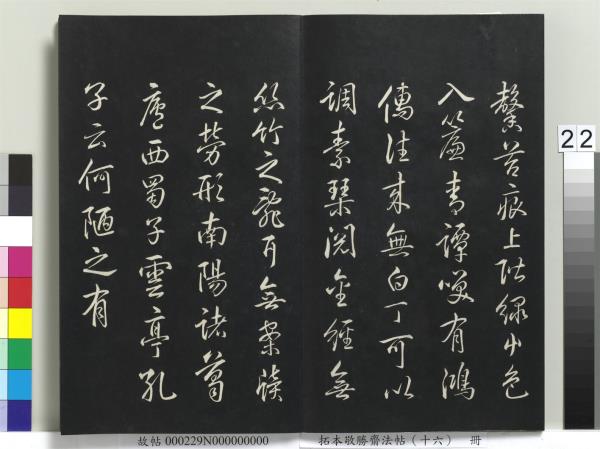 馨苔痕上階綠草色
入簾青譚笑有鴻
儒往來無白丁可以
調素琴閱金經無
絲竹之亂耳無案牘
之勞形南陽諸葛
廬西蜀子雲亭孔
子云何陋之有
22
故帖 000229N000000000
拓本敬勝齋法帖（十六） 冊